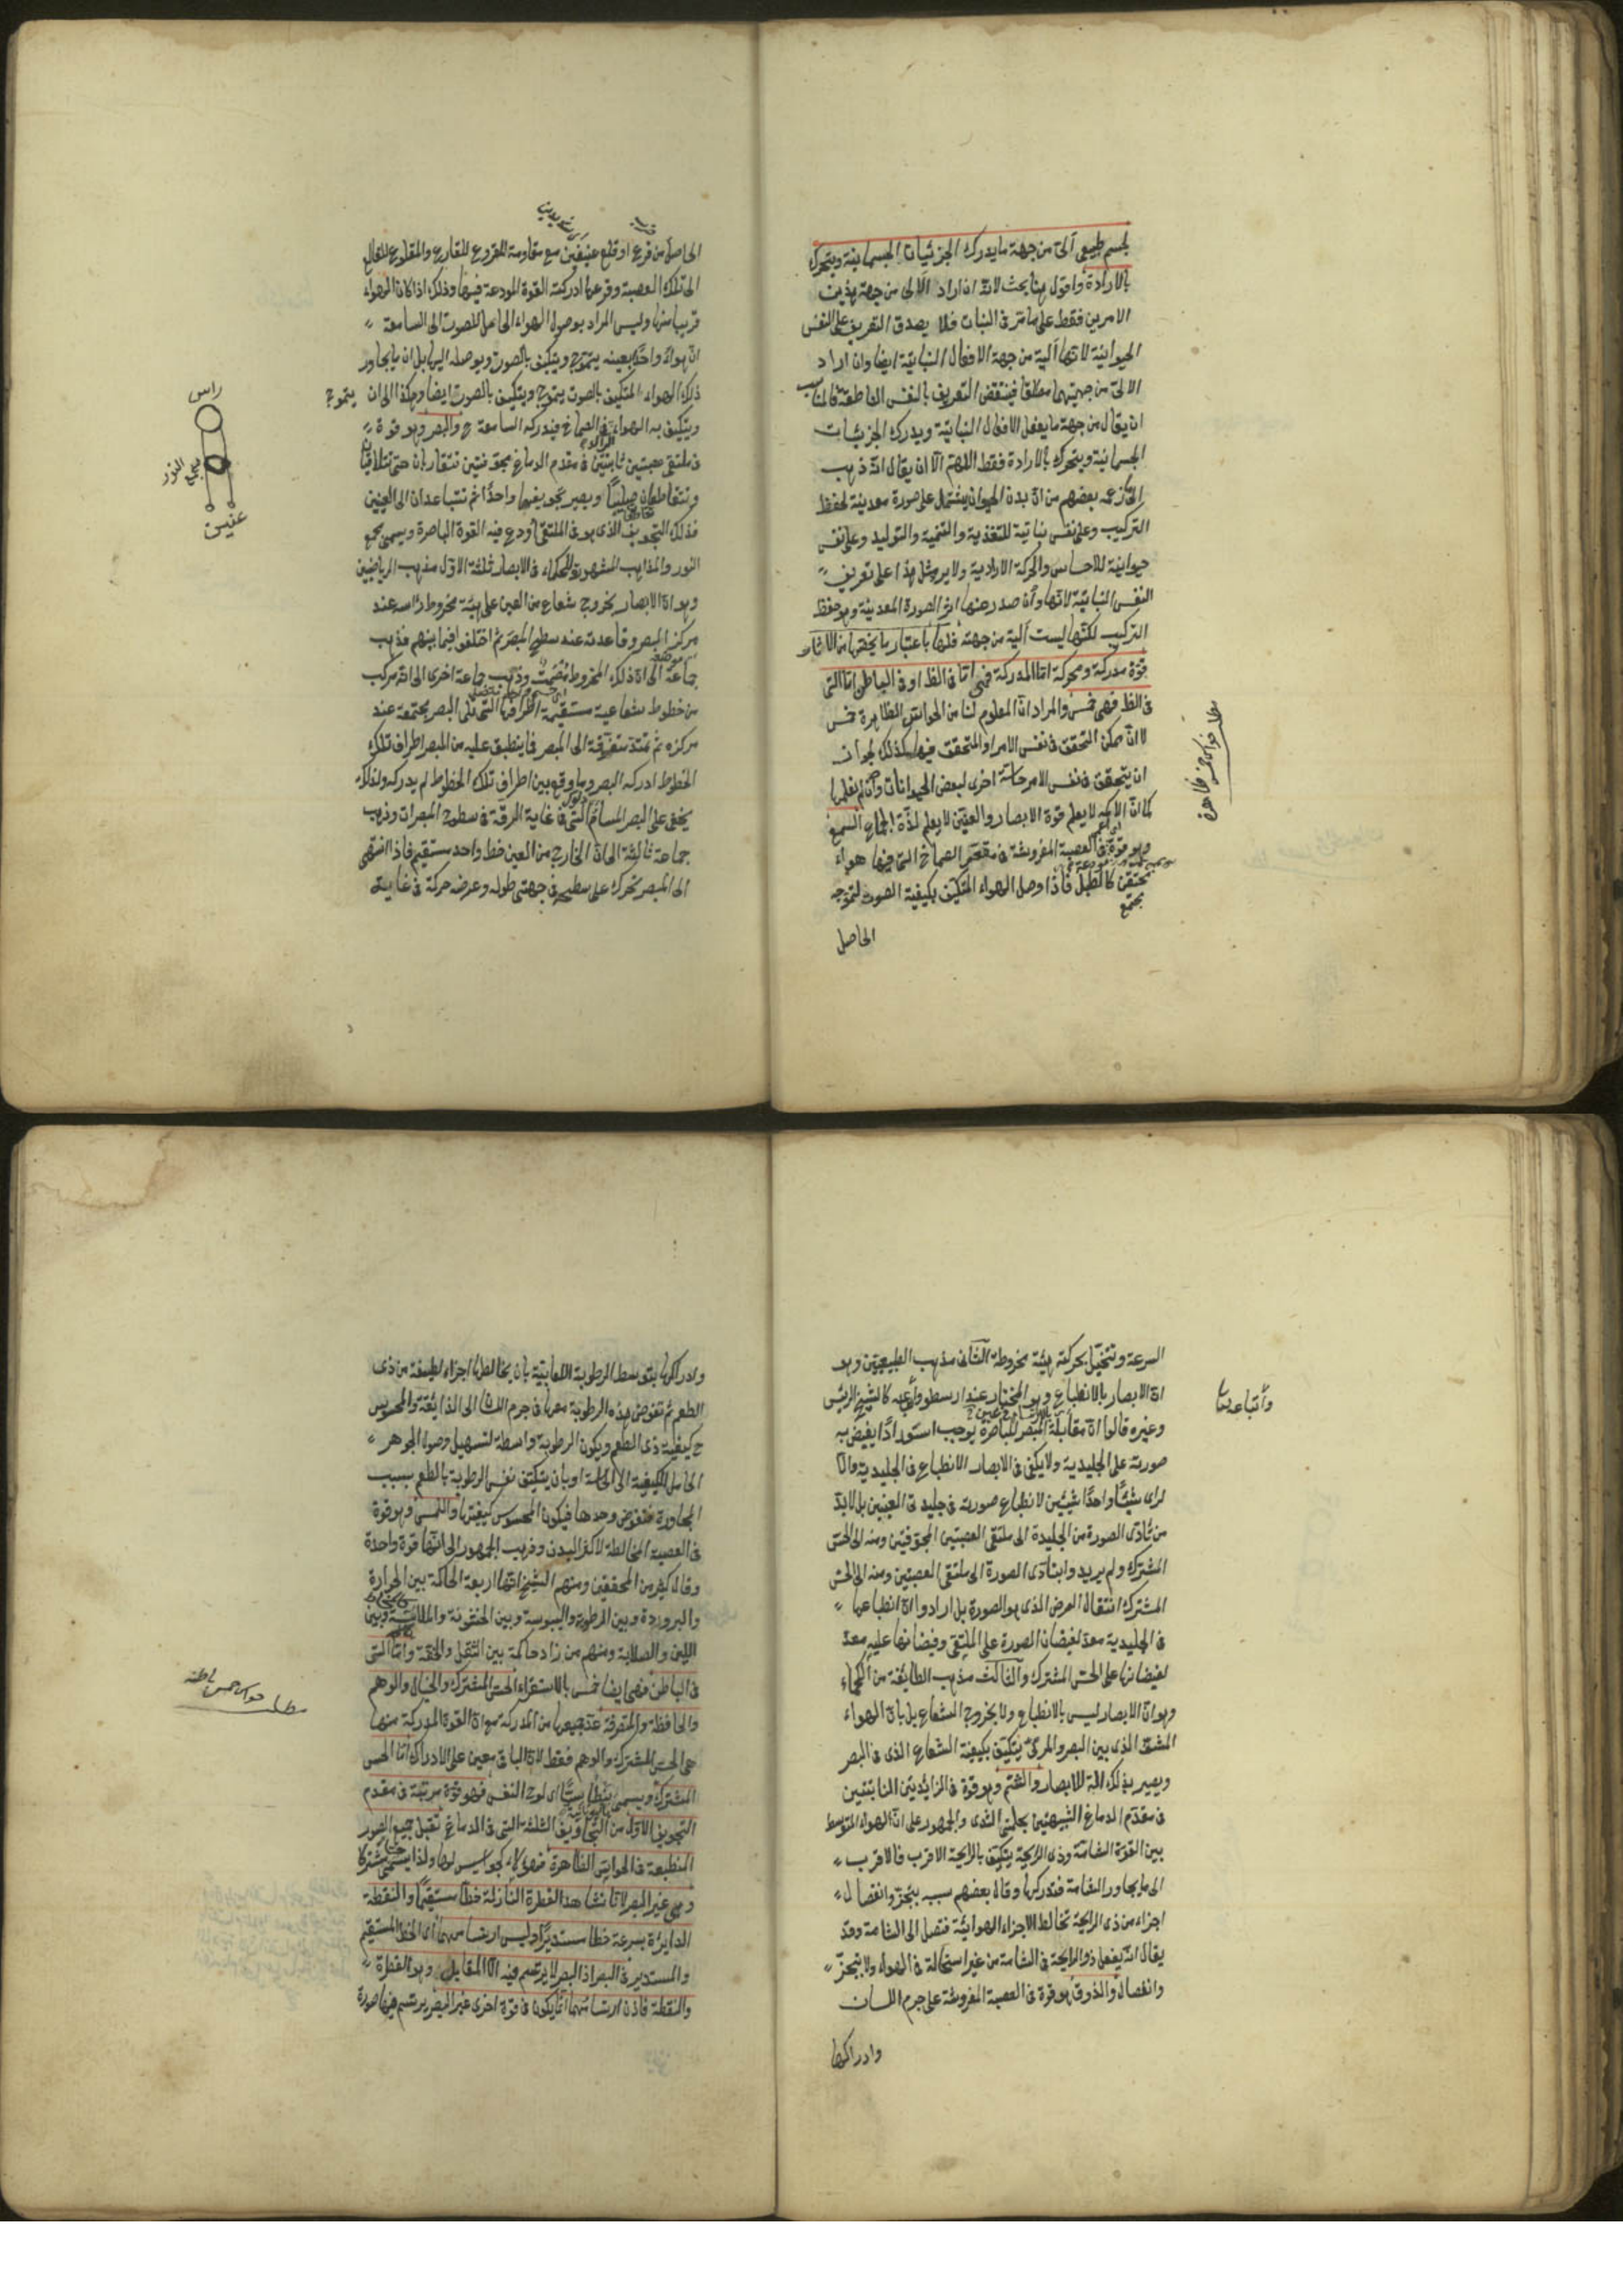 لجسم طبيعى آلى من جهة ما يدرك الجزئيات الجسمانية ويتحرك
بالارادة واقول هنا بحث لانه ان اراد الآلى من جهة هذين
الامرين فقط على ما مر فى النبات فلا يصدق التعريف على النفس
الحيوانية لانها آلية من جهة الافعال النباتية ايضا وان اراد
الآلى من جهتهما مطلقا فينتقض التعريف بالنفس الناطقة فالمناسب
ان يقال من جهة ما يفعل الافعال النباتية ويدرك الجزئيات
الجسمانية ويتحرك بالارادة فقط اللهم الا ان يقال انه ذهب
الى ما زعمه بعضهم من ان بدن الحيوان يشتمل على صورة معدنية لحفظ
التركيب وعلى نفس نباتية للتغذية والتنمية والتوليد وعلى نفس
حيوانية للاحساس والحركة الارادية ولا يرد مثل هذا على تعريف
النفس النباتية لانها وان صدر عنها اثر الصورة المعدنية وهو حفظ
التركيب لكنها ليست آلية من جهته فلها باعتبار ما يخصها من الآثار
قوة مدركة ومحركة اما المدركة فهى اما فى الظ او فى الباطن اما التى
فى الظ فهى خمس والمراد ان المعلوم لنا من الحواس الظاهرة خمس
لا ان ممكن التحقق فى نفس الامر او المتحقق فيها كذلك لجواز
ان يتحقق فى نفس الامر حاسة اخرى لبعض الحيوانات وان لم نعلمها
كما ان الاكمه لا يعلم قوة الابصار والعنين لا يعلم لذة الجماع السمع
وهو قوة فى العصبة المفروشة فى مقعر الصماخ التى فيها هواء
محتقن كالطبل فاذا وصل الهواء المتكيف بكيفية الصوت لتموجه
مجتمع
الحاصل
مطلب حواس خمس ظاهرة
الحاصل من قرع او قلع عنيفين مع مقاومة المقروع للقارع والمقلوع للقالع
الى تلك العصبة وقرعها ادركته القوة المودعة فيها وذلك اذا كان الهواء
قريبا منها وليس المراد بوصول الهواء الحامل للصوت الى السامعة
ان هواء واحدا بعينه يتموج ويتكيف بالصوت ويوصله اليها بل ان ما يجاور
ذلك الهواء المتكيف بالصوت يتموج ويتكيف بالصوت ايضا وهكذا الى ان يتموج
ويتكيف به الهواء الراكد فى الصماخ فيدركه السامعة ح والبصر وهو قوة
فى ملتقى عصبتين نابتتين فى مقدم الدماغ مجوفتين تتقاربان حتى تتلاقيان
وتتقاطعان صليبيا ويصير تجويفهما واحدا ثم تتباعدان الى العينين
فذلك التجويف الذى هو فى الملتقى اودع فيه القوة الباصرة ويسمى مجمع
النور والمذاهب المشهورة للحكماء فى الابصار ثلثة الاول مذهب الرياضيين
وهو ان الابصار بخروج شعاع من العين على هيئة مخروط راسه عند
مركز البصر وقاعدته عند سطح المبصر ثم اختلفوا فيما بينهم فذهب
جماعة الى ان ذلك المخروط مصمت وذهب جماعة اخرى الى انه مركب
من خطوط شعاعية مستقيمة اطرافها التى تلى البصر مجتمعة عند
مركزه ثم تمتد متفرقة الى المبصر فما ينطبق عليه من المبصر اطراف تلك
الخطوط ادركه البصر وما وقع بين اطراف تلك الخطوط لم يدركه ولذلك
يخفى على البصر المسام التى فى غاية الرقة فى سطوح المبصرات وذهب
جماعة ثالثة الى ان الخارج من العين خط واحد مستقيم فاذا انتهى
الى المبصر تحرك على سطحه فى جهتى طوله وعرضه حركة فى غاية
راس
مجمع النور
عنين
السرعة ويتخيل بحركته هيئة مخروطة الثانى مذهب الطبيعيين وهو
ان الابصار بالانطباع وهو المختار عند ارسطو واتباعه كالشيخ الرئيس
وغيره قالوا ان مقابلة المبصر للباصرة يوجب استعدادا يفيض به
صورته على الجليدية ولا يكفى فى الابصار الانطباع فى الجليدية والا
لراى شيئا واحدا شيئين لانطباع صورته فى جليدتى العينين بل لابد
من تادى الصورة من الجليدة الى ملتقى العصبتين المجوفتين ومنه الى الحس
المشترك ولم يريدوا بتادى الصورة الى ملتقى العصبتين ومنه الى الحس
المشترك انتقال العرض الذى هو الصورة بل ارادوا ان انطباعها
فى الجليدية معد لفيضان الصورة على الملتقى وفيضانها عليه معد
لفيضانها على الحس المشترك والثالث مذهب الطائفة من الحكماء
وهو ان الابصار ليس بالانطباع ولا بخروج الشعاع بل بان الهواء
المشف الذى بين البصر والمرئى يتكيف بكيفية الشعاع الذى فى البصر
ويصير بذلك آلة للابصار والشم وهو قوة فى الزائدتين النابتتين
فى مقدم الدماغ الشبيهتين بحلمتى الثدى والجمهور على ان الهواء المتوسط
بين القوة الشامة وذى الرايحة يتكيف بالرايحة الاقرب فالاقرب
الى ما يجاور الشامة فتدركها وقال بعضهم سببه بتجزؤ وانفصال
اجزاء من ذى الرايحة تخالط الاجزاء الهوائية فتصل الى الشامة وقد
يقال انه يفعل ذو الرايحة فى الشامة من غير استحالة فى الهواء ولا تجزؤ
وانفصال والذوق هو قوة فى العصبة المفروشة على جرم اللسان
وادراكها
وادراكها بتوسط الرطوبة اللعابية بان يخالطها اجزاء لطيفة من ذى
الطعم ثم تغوص هذه الرطوبة معها فى جرم اللسان الى الذائقة والمحسوس
ح كيفية ذى الطعم ويكون الرطوبة واسطة لتسهيل وصول الجوهر
الحامل للكيفية الى الحاسة او بان يتكيف نفس الرطوبة بالطعم بسبب
المجاورة فتغوص وحدها فيكون المحسوس كيفيتها واللمس وهو قوة
فى العصبة المخالطة لاكثر البدن وذهب الجمهور الى انها قوة واحدة
وقال كثير من المحققين ومنهم الشيخ انها اربعة الحاكمة بين الحرارة
والبرودة وبين الرطوبة واليبوسة وبين الخشونة والملاسة وبين
اللين والصلابة ومنهم من زاد حاكمة بين الثقل والخفة واما التى
فى الباطن فهى ايضا خمس بالاستقراء الحس المشترك والخيال والوهم
والحافظة والمتصرفة عد جميعها من المدركة مع ان القوة المدركة منها
هى الحس المشترك والوهم فقط لان الباقى معين على الادراك اما الحس
المشترك ويسمى بنطاسيا اى لوح النفس فهو قوة مرتبة فى مقدم
التجويف الاول من التجاويف الثلثة التى فى الدماغ تقبل جميع الصور
المنطبعة فى الحواس الظاهرة فهؤلاء كجواسيس لها ولذا يسمى حسا مشتركا
وهى غير البصر لانا نشاهد القطرة النازلة خطا مستقيما والنقطة
الدايرة بسرعة خطا مستديرا وليس ارتسامهما اى الخط المستقيم
والمستدير فى البصر اذ البصر لا يرتسم فيه الا المقابل وهو القطرة
والنقطة فاذن ارتسامهما انما يكون فى قوة اخرى غير البصر يرتسم فيها صورة
مطلب حواس خمس باطنه